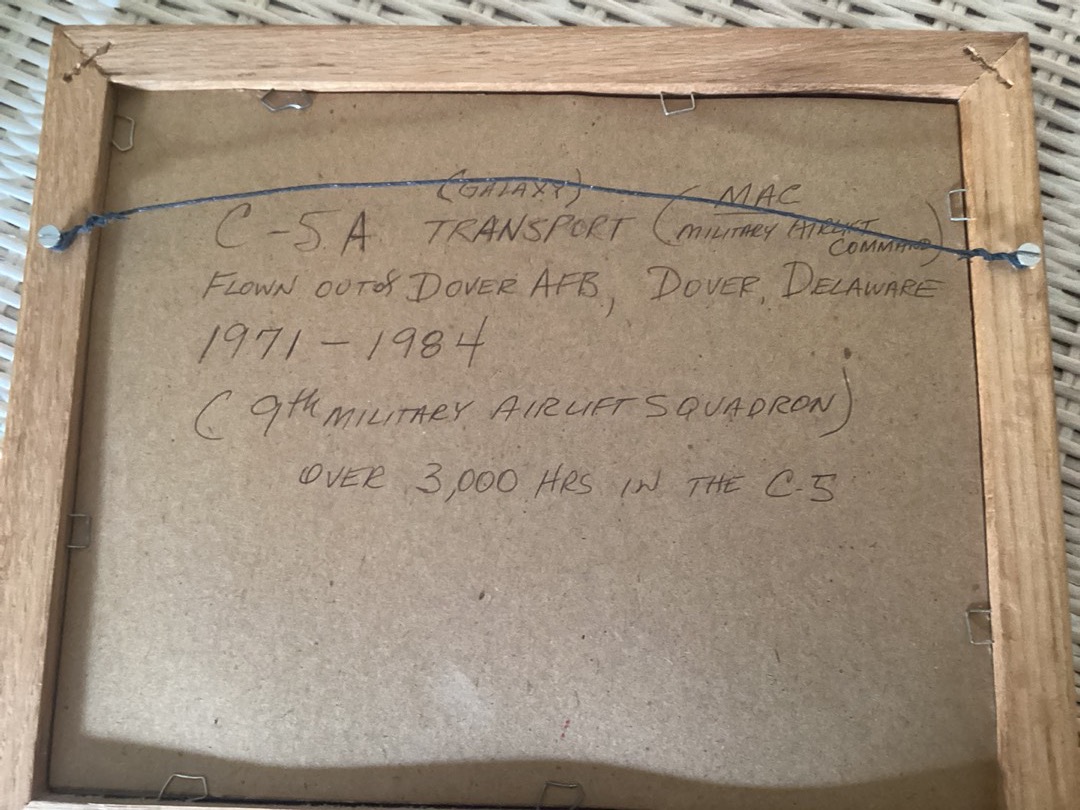 (GALAXY)
C-5A TRANSPORT (MAC
MILITARY AIRLIFT
COMMAND)
FLOWN OUT OF DOVER AFB, DOVER, DELAWARE
1971-1984
(9th MILITARY AIRLIFT SQUADRON)
OVER 3,000 HRS IN THE C-5